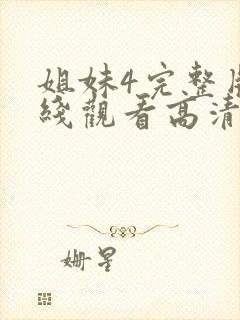 姐妹4完整
綫觀看高清
姗星